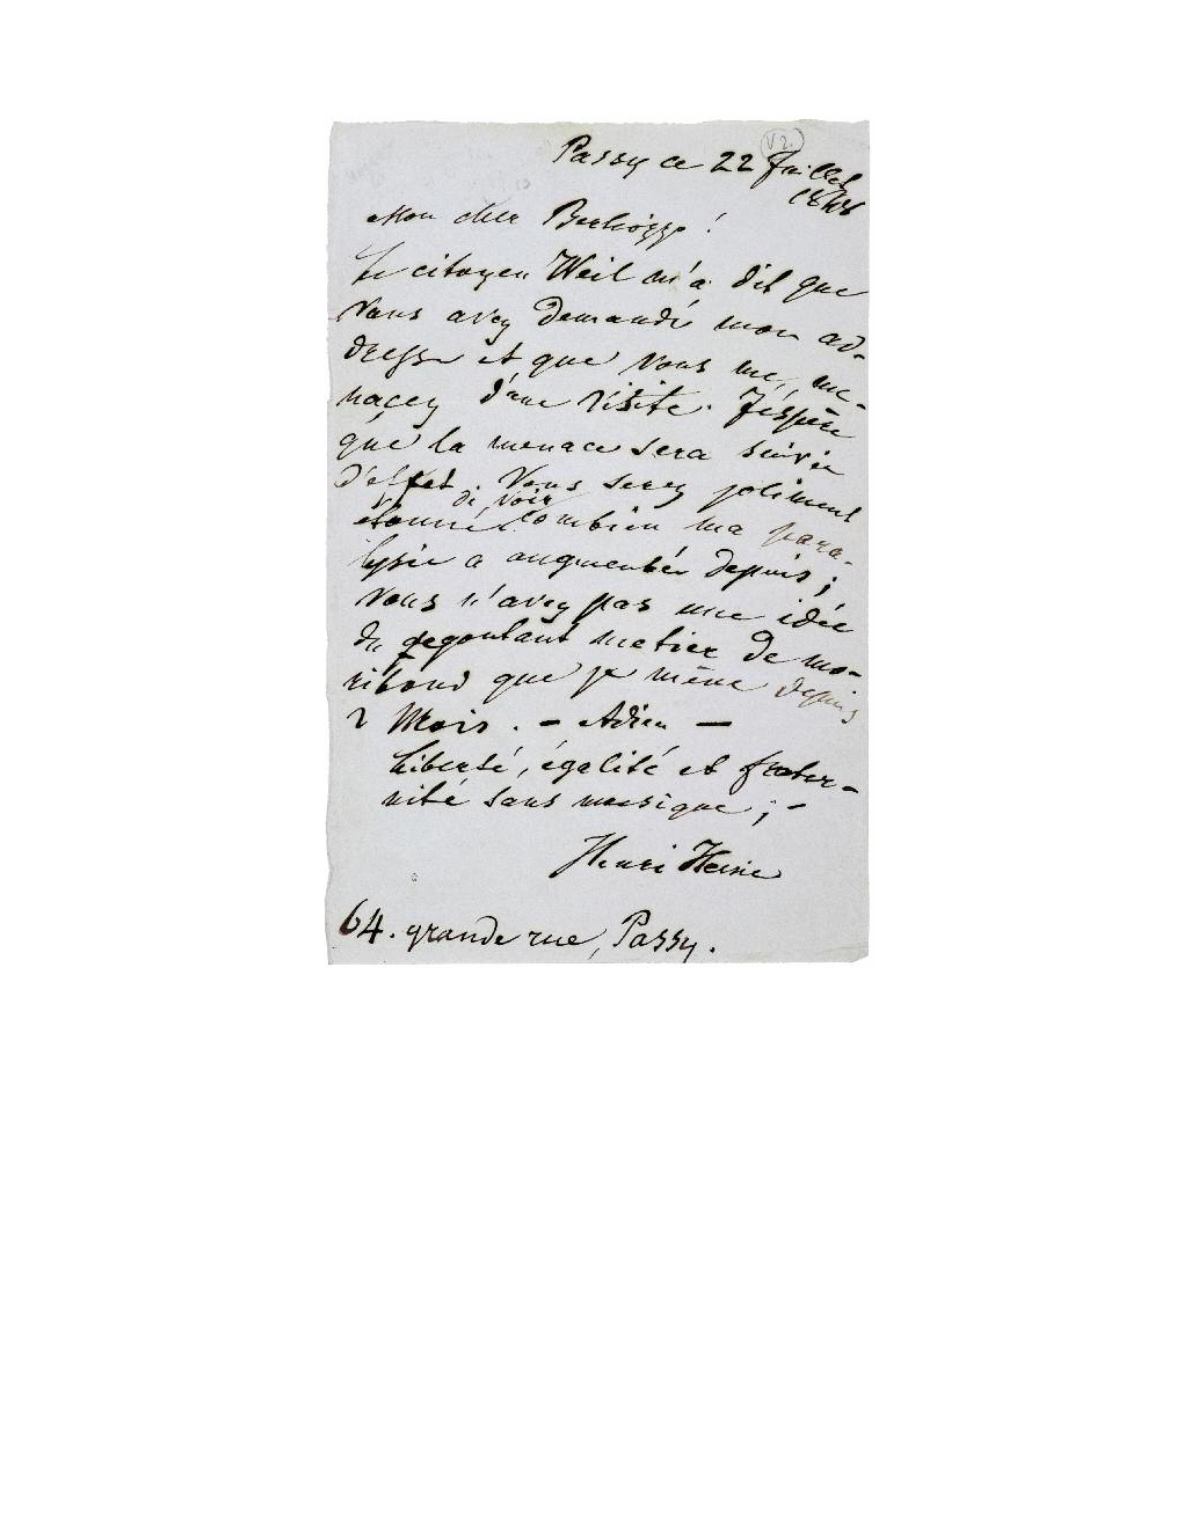 V 2.
Passy ce 22 Juillet
1848
Mon cher
Le citoyen Weil m'a dit que
Vous avez demandé mon ad-
dresse et que Vous me me-
naçez d'une visite. J'éspère
que la menace sera suivie
d'effet. Vous serez joliment
de voir
étonné combien ma para-
lysie a augmentée depuis;
Vous n'avez pas une idée
du degoutant metier de mo-
ribond que je mène depuis
2 Mois. – Adieu –
Liberté, égalité et frater-
nité sans musique; –
Henri Heine
64. grande rue, Passy.